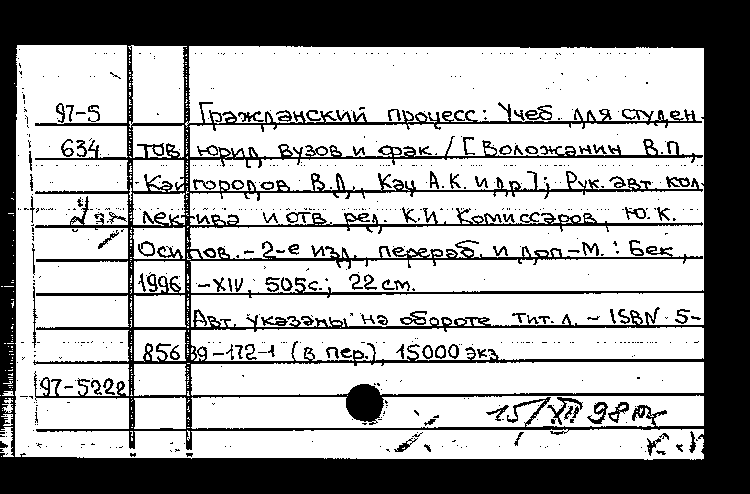 97-5 Гражданский процесс: Учеб. для студен-
634 тов юрид. вузов и фак. / [Воложанин В.П.,
Кайгородов В.Д., Кац А.К. и др.]; Рук. авт. кол-
лектива и отв. ред. К.И. Комиссаров, Ю.К.
Осипов. - 2-е изд., перераб. и доп. - М. : Бек,
1996 - XIV, 505с.; 22 см.
Авт. указаны на обороте тит. л. - ISBN 5-
85639-172-1 (в пер.), 15000 экз
97-5222
15/XII 98